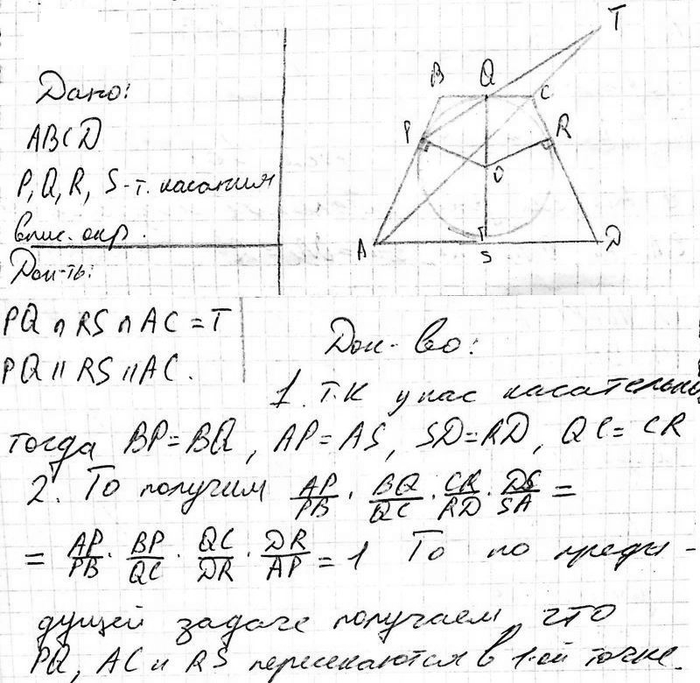 Дано:
ABCD
P, Q, R, S - т. касания
впис. окр.
Док-ть:
PQ ∩ RS ∩ AC = T
PQ || RS || AC.
T
B Q C
P R
O
A S D
Док-во:
1. Т.К у нас касательные,
тогда BP=BQ, AP=AS, SD=RD, QC=CR
2. То получим AP/PB · BQ/QC · CR/RD · DS/SA =
= AP/PB · BP/QC · QC/DR · DR/AP = 1 То по преды-
дущей задаче получаем, что
PQ, AC и RS пересекаются в 1-ой точке.